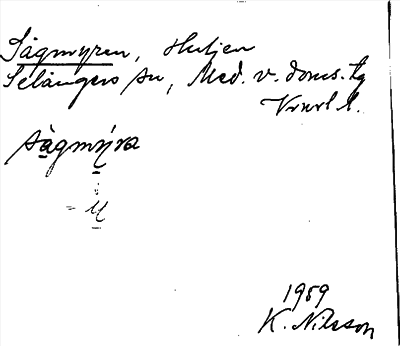 Sågmyren, Hulien
Selångers sn, Med. v. doms. tg
Vrkl l.
sågmýra
= y
1959
K. Nilsson